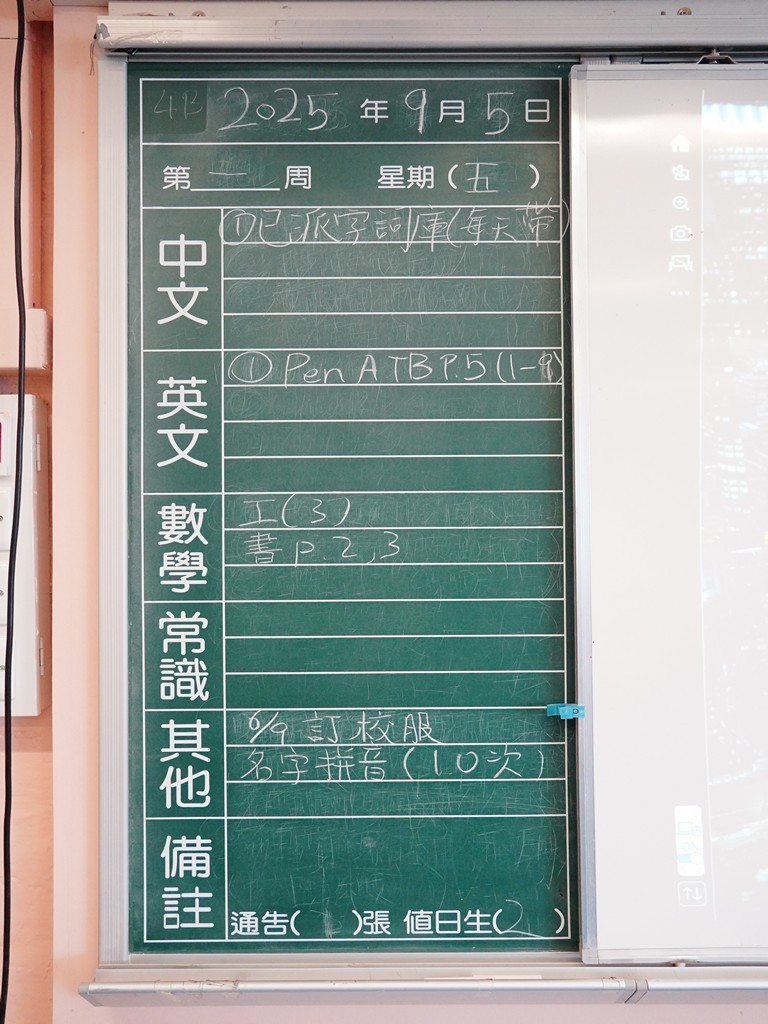 4B 2025 年 9 月 5 日
第 一 周 星期 ( 五 )
中文
①已派字詞庫(每天帶)
英文
① Pen A TB P.5 (1-9)
數學
工(3)
書 p.2,3
常識
其他
6/9 訂校服
名字拼音(10次)
備註
通告( )張 值日生(2 )